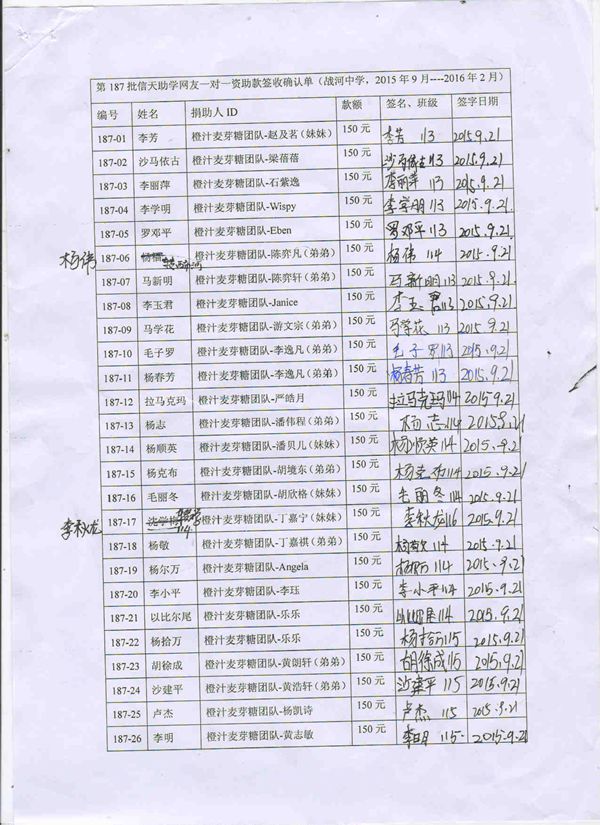 第 187 批信天助学网友一对一资助款签收确认单（战河中学，2015 年 9 月----2016 年 2 月）
编号 姓名 捐助人 ID 款额 签名、班级 签字日期
187-01 李芳 橙汁麦芽糖团队-赵及茗（妹妹） 150 元 李芳 113 2015.9.21
187-02 沙马依古 橙汁麦芽糖团队-梁蓓蓓 150 元 沙马依古 113 2015.9.21
187-03 李丽萍 橙汁麦芽糖团队-石紫逸 150 元 李丽萍 113 2015.9.21
187-04 李学明 橙汁麦芽糖团队-Wispy 150 元 李学明 113 2015.9.21
187-05 罗邓平 橙汁麦芽糖团队-Eben 150 元 罗邓平 113 2015.9.21
杨伟 187-06 橙汁麦芽糖团队-陈弈凡（弟弟） 150 元 杨伟 114 2015.9.21
187-07 马新明 橙汁麦芽糖团队-陈弈轩（弟弟） 150 元 马新明 113 2015.9.21
187-08 李玉君 橙汁麦芽糖团队-Janice 150 元 李玉君 113 2015.9.21
187-09 马学花 橙汁麦芽糖团队-游文宗（弟弟） 150 元 马学花 113 2015.9.21
187-10 毛子罗 橙汁麦芽糖团队-李逸凡（弟弟） 150 元 毛子罗 113 2015.9.21
187-11 杨春芳 橙汁麦芽糖团队-李逸凡（弟弟） 150 元 杨春芳 113 2015.9.21
187-12 拉马克玛 橙汁麦芽糖团队-严皓月 150 元 拉马克玛 2015.9.21
187-13 杨志 橙汁麦芽糖团队-潘伟程（弟弟） 150 元 杨志 114 2015.9.21
187-14 杨顺英 橙汁麦芽糖团队-潘贝儿（妹妹） 150 元 杨顺英 114 2015.9.21
187-15 杨克布 橙汁麦芽糖团队-胡境东（弟弟） 150 元 杨克布 114 2015.9.21
187-16 毛丽冬 橙汁麦芽糖团队-胡欣格（妹妹） 150 元 毛丽冬 114 2015.9.21
李秋龙 187-17 114 橙汁麦芽糖团队-丁嘉宁（妹妹） 150 元 李秋龙 116 2015.9.21
187-18 杨敏 橙汁麦芽糖团队-丁嘉祺（弟弟） 150 元 杨敏 114 2015.9.21
187-19 杨尔万 橙汁麦芽糖团队-Angela 150 元 114 2015.9.21
187-20 李小平 橙汁麦芽糖团队-李珏 150 元 李小平 114 2015.9.21
187-21 以比尔尾 橙汁麦芽糖团队-乐乐 150 元 114 2015.9.21
187-22 杨拾万 橙汁麦芽糖团队-乐乐 150 元 杨拾万 115 2015.9.21
187-23 胡徐成 橙汁麦芽糖团队-黄朗轩（弟弟） 150 元 胡徐成 115 2015.9.21
187-24 沙建平 橙汁麦芽糖团队-黄浩轩（弟弟） 150 元 沙建平 115 2015.9.21
187-25 卢杰 橙汁麦芽糖团队-杨凯诗 150 元 卢杰 115 2015.9.21
187-26 李明 橙汁麦芽糖团队-黄志敏 150 元 李明 115 2015.9.21